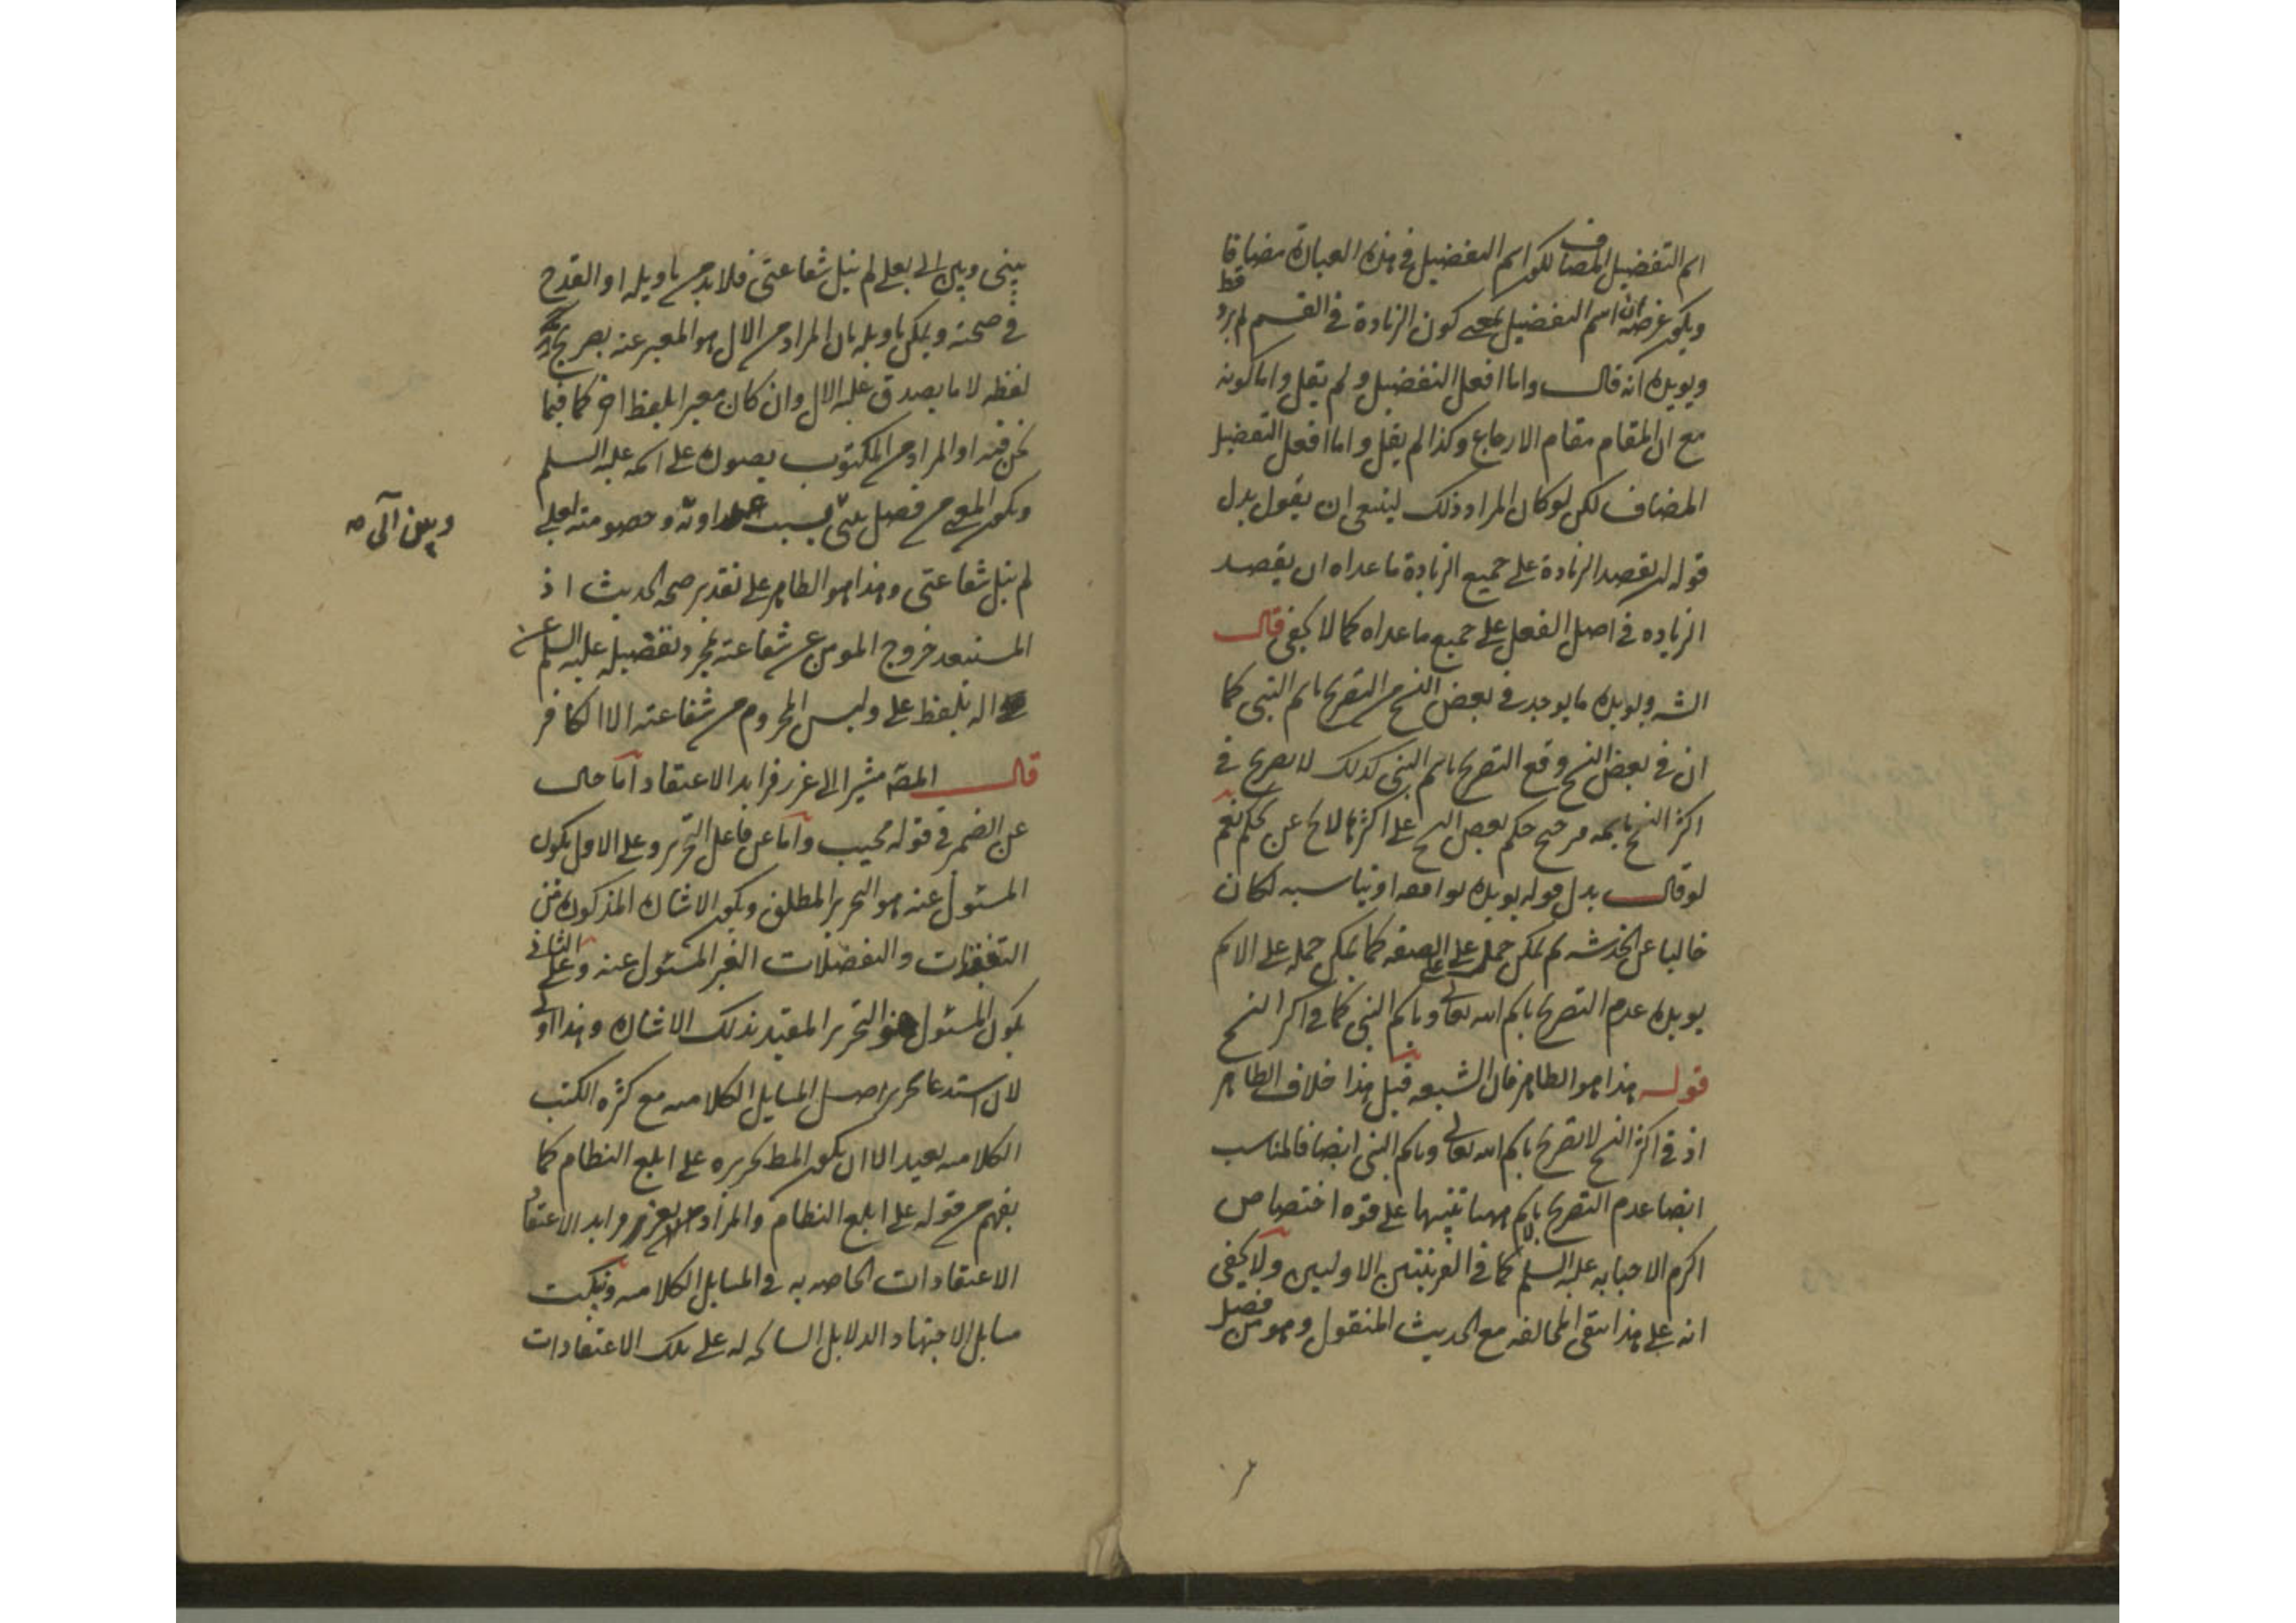 اسم التفضيل المضاف لكون اسم التفضيل في هذه العبارة مضافا
ويكون غرضه ان اسم التفضيل بمعنى كون الزيادة في القسم لم يرد قط
ويويده انه قال واما افعل التفضيل ولم يقل واما كونه
مع ان المقام مقام الارجاع وكذا لم يقل واما افعل التفضيل
المضاف لكن لو كان المراد ذلك لينبغي ان يقول بدل
قوله ان يقصد الزيادة على جميع الزيادة ما عداه ان يقصد
الزياده في اصل الفعل على جميع ما عداه كما لا يخفى قال
الشه ويويده ما يوجد في بعض النسخ من التصريح باسم النبي كما
ان في بعض النسخ وقع التصريح باسم النبي كذلك لا تصريح في
اكثر النسخ حكم بعض النسخ على اكثرها لا يخ عن تحكم نعم
لو قال بدل قوله يويده يوافقه او يناسبه لكان
خاليا عن الخدشه لم يمكن حمل على الصفه كما يمكن حمله على الاسم
يويده عدم التصريح باسم الله تعالى وباسم النبي كما في اكثر النسخ
قوله هذا هو الظاهر فان الشيعه قيل هذا خلاف الظاهر
اذ في اكثر النسخ لا تصريح باسم الله تعالى وباسم النبي ايضا فالمناسب
ايضا عدم التصريح بالاسم ههنا تنبيها على قوة اختصاص
اكرم الاحبا به عليه السلم كما في القرينتين الاوليين ولا يخفى
انه على هذا يبقى المخالفه مع الحديث المنقول وهو من فصل
بيني وبين الي بعلي لم ينل شفاعتي فلا بد من تاويله او القدح
في صحته ويمكن تاويله بان المراد من الال هو المعبر عنه بصريح
لفظه لا ما يصدق عليه الال وان كان معبرا بلفظ اخر كما فيما
نحن فيه او المراد من المكتوب بصورة على اسمه عليه السلم
ويكون المعنى من فصل بيني بسبب عداوته وخصومته لعلي
وبين آلي صه
لم ينل شفاعتي وهذا هو الظاهر على تقدير صحه الحديث اذ
المستبعد خروج المومن عن شفاعته بمجرد تفضيله عليه السلم عن
اله بلفظ على وليس المحروم من شفاعته الا الكافر
قال المصه مشيرا الى غرر فرايد الاعتقاد اما حال
عن الضمير في قوله مجيب واما عن فاعل التحرير وعلى الاول يكون
المسئول عنه هو التحرير المطلق ويكون الاشارة المذكورة من
التفقدات والتفضلات الغير المسئول عنه وعلى الثاني
يكون المسئول هو التحرير المقيد بذلك الاشارة وهذا اولى
لان استدعا تحرير اصل المسايل الكلاميه مع كثره الكتب
الكلاميه بعيد الا ان يكون المط تحريره على ابلغ النظام كما
يفهم من قوله على ابلغ النظام والمراد من غرر فرايد الاعتقاد
الاعتقادات الخاصه به في المسايل الكلاميه ونكت
مسايل الاجتهاد الدلايل السانحه له على تلك الاعتقادات